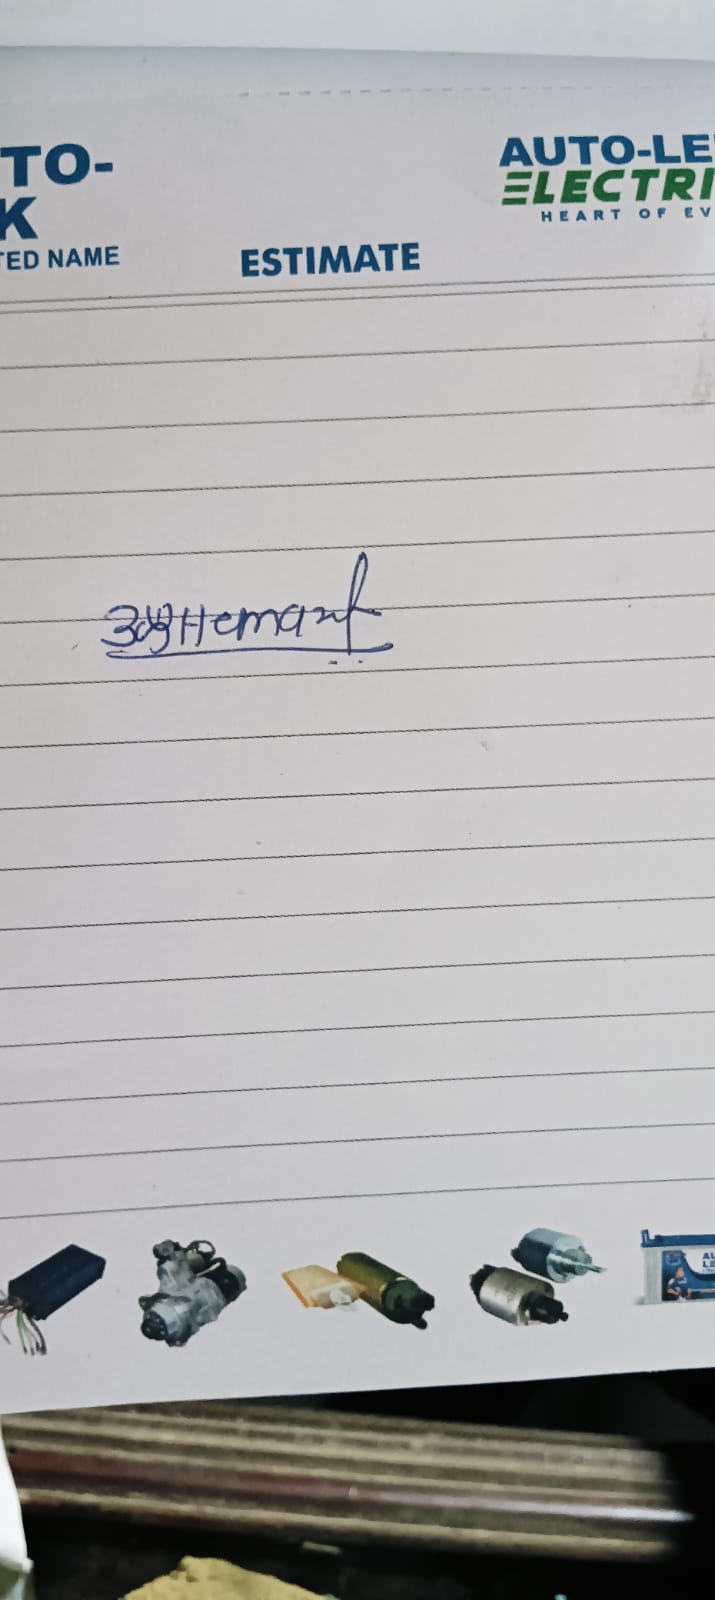 TO-
K
TED NAME
ESTIMATE
AUTO-LE
ELECTRI
HEART OF EV
Hemant